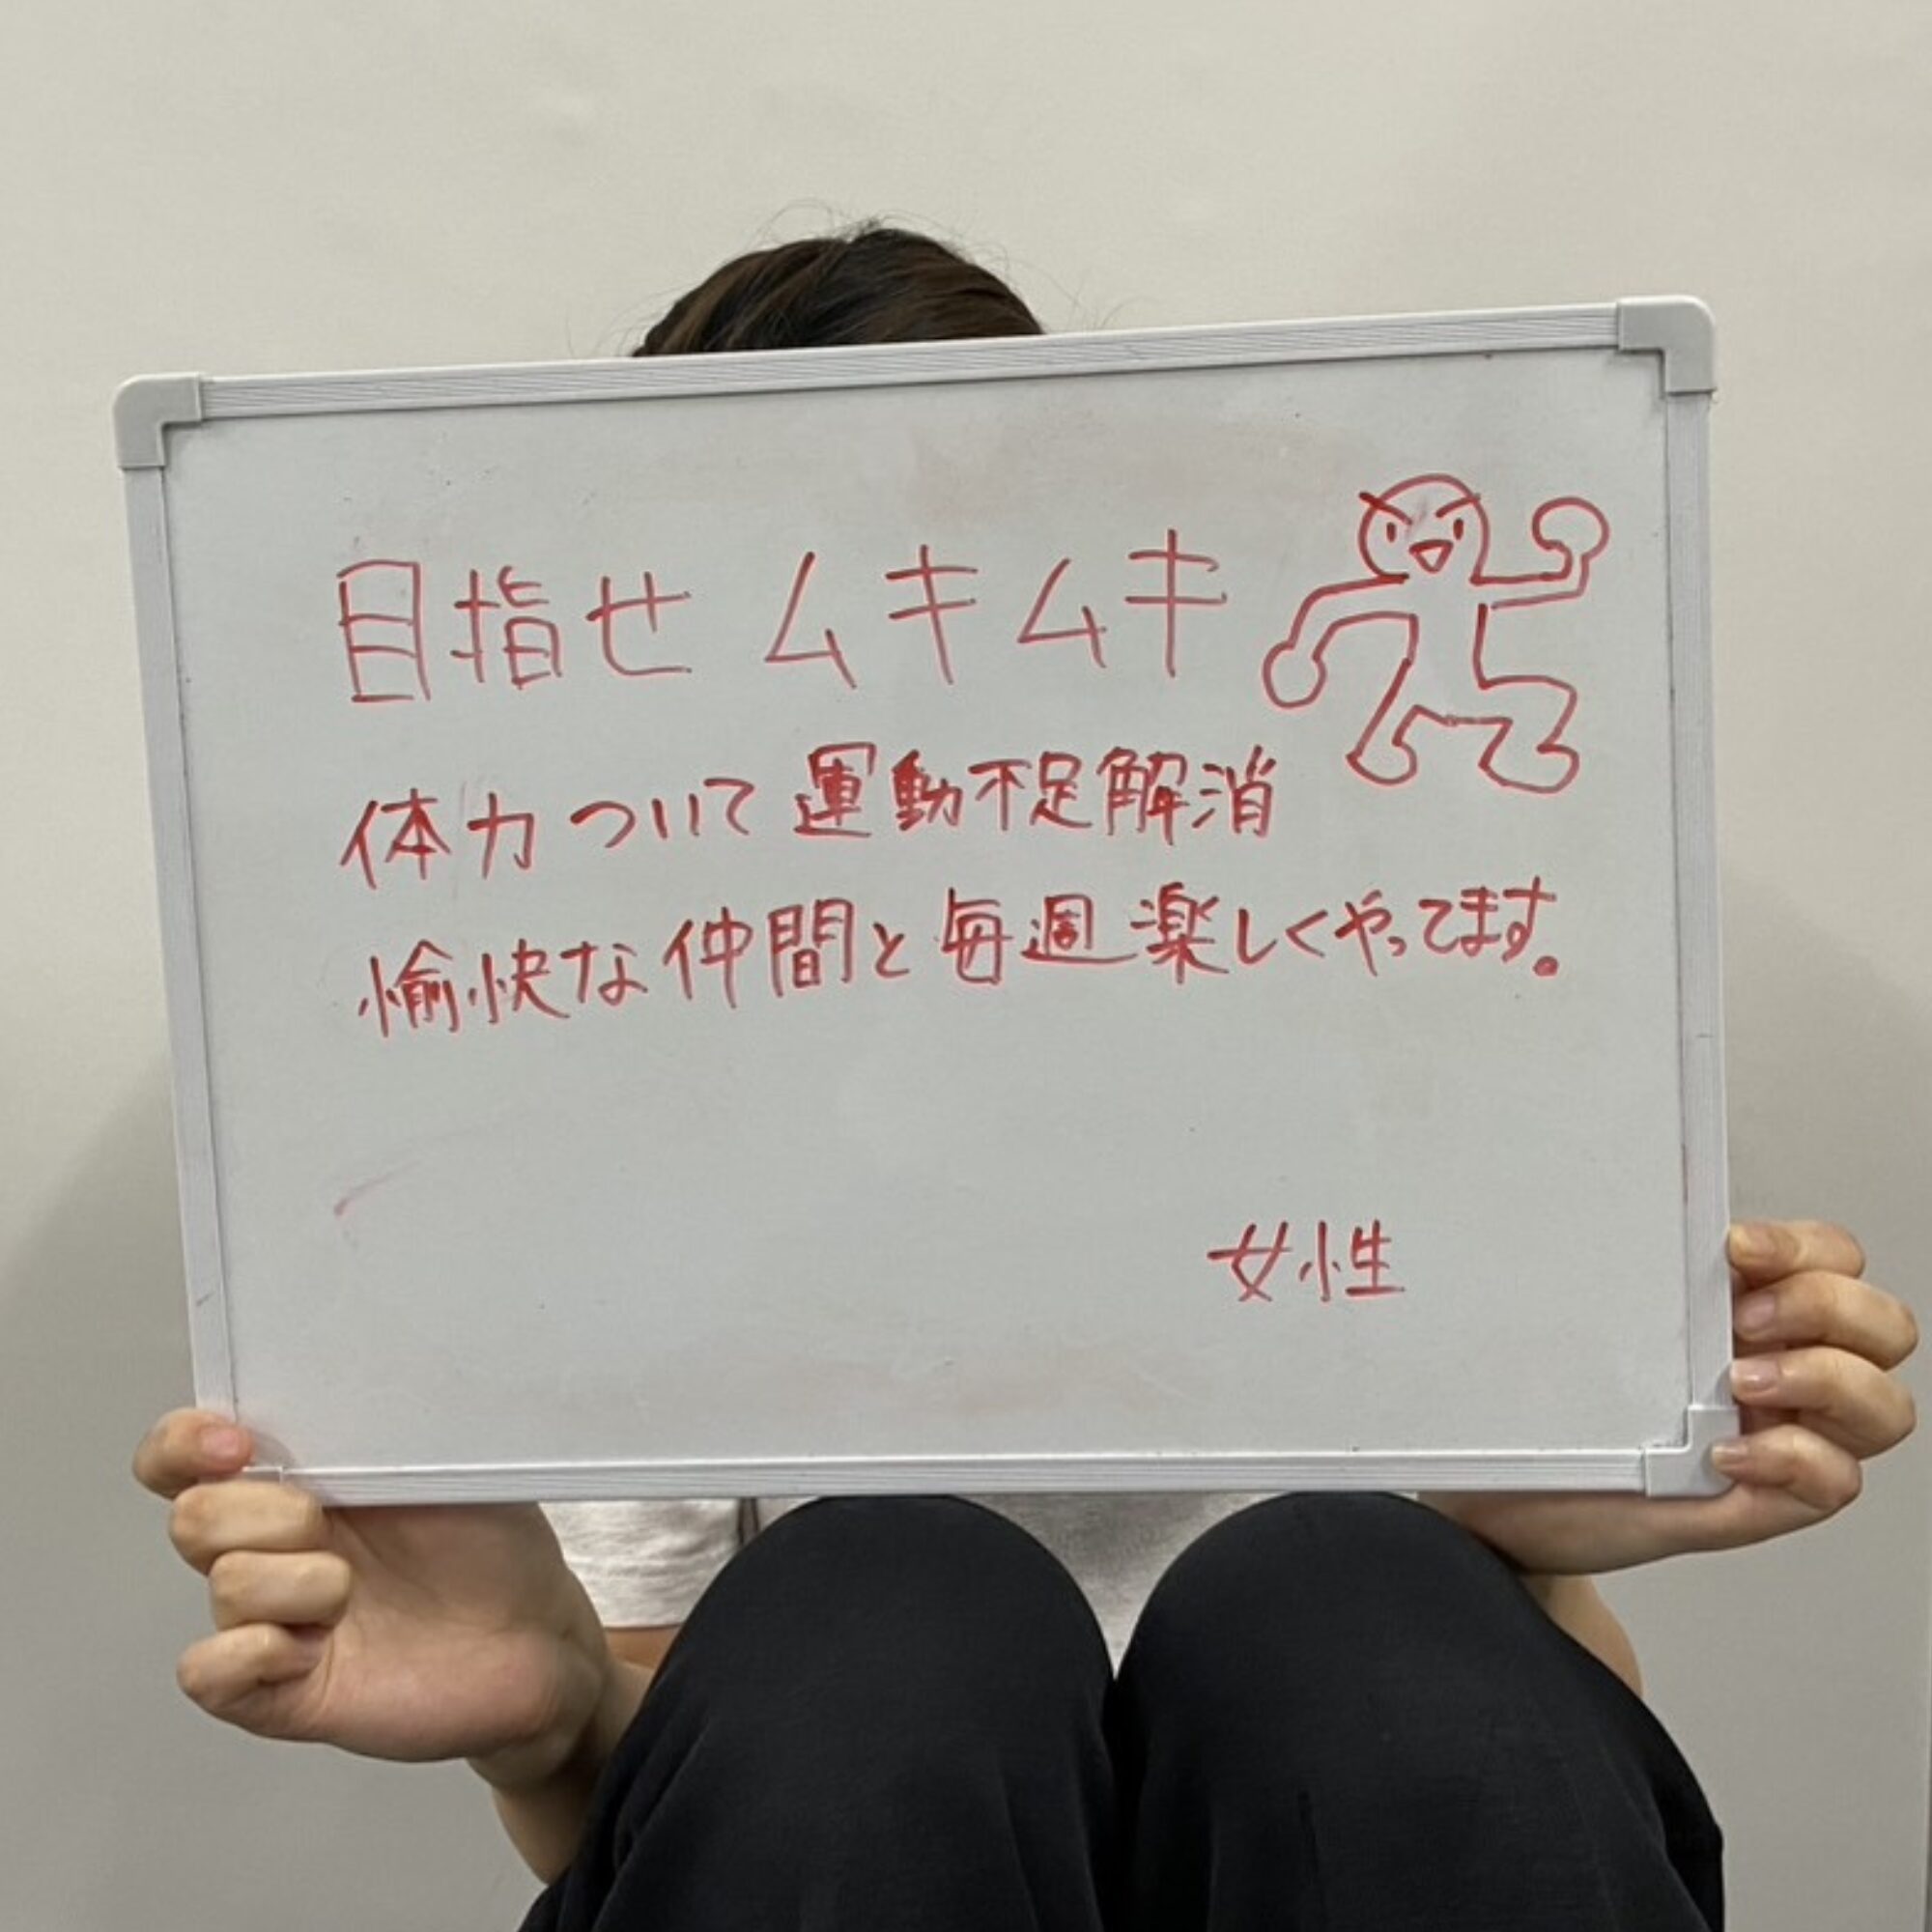 目指せ ムキムキ
体力ついて運動不足解消
愉快な仲間と毎週楽しくやってます。
女性